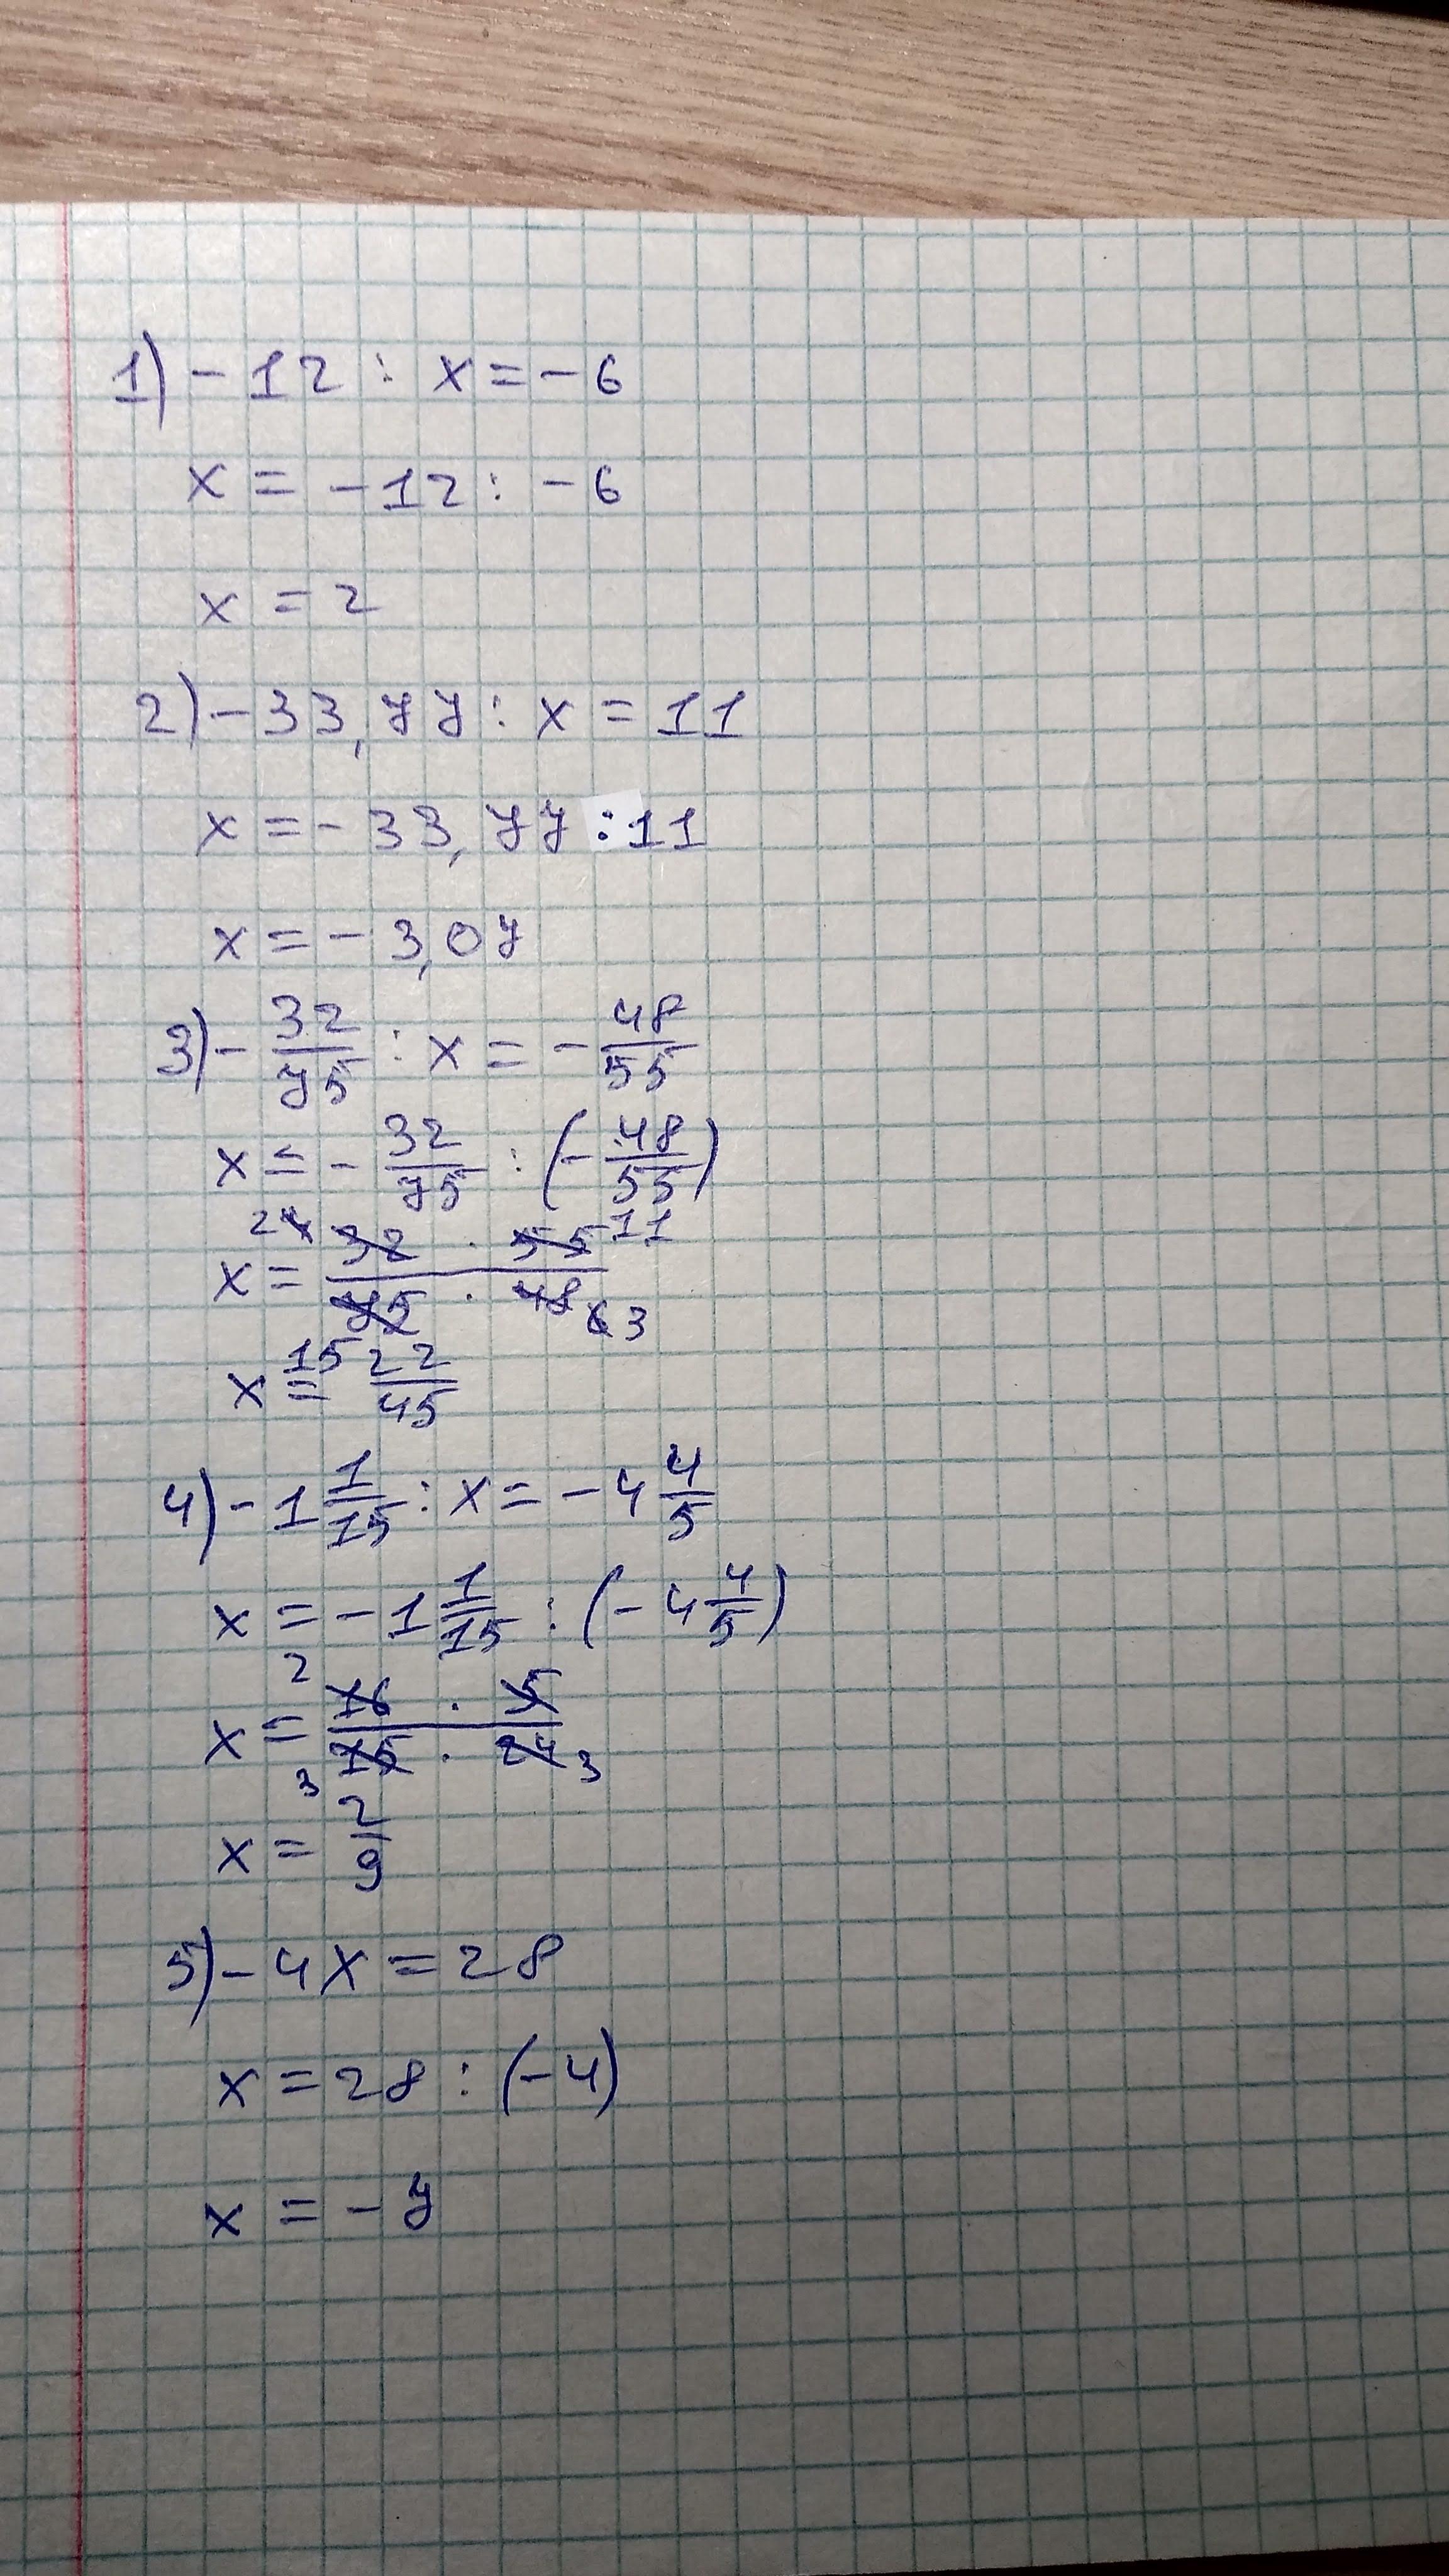 1) - 12 : x = - 6
x = - 12 : - 6
x = 2
2) - 33,77 : x = 11
x = - 33,77 : 11
x = - 3,07
3) - 32/75 : x = - 48/55
x = - 32/75 : (- 48/55)
x = 32 · 55 / 75 · 48
x = 22/45
4) - 1 1/15 : x = - 4 4/5
x = - 1 1/15 : (- 4 4/5)
x = 16 · 5 / 15 · 24
x = 2/9
5) - 4x = 28
x = 28 : (-4)
x = - 7